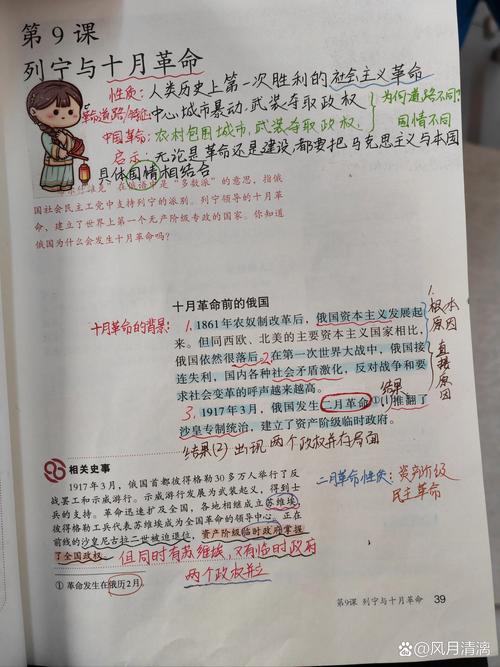 第9课
列宁与十月革命
性质：人类历史上第一次胜利的社会主义革命
革命道路/特征：中心城市暴动，武装夺取政权
中国革命：农村包围城市，武装夺取政权．
为何道路不同？
国情不同
启示：无论是革命还是建设，都要把马克思主义与本国
具体国情相结合
"在俄语中是"多数派"的意思，指俄
国社会民主工党中支持列宁的派别。列宁领导的十月革
命，建立了世界上第一个无产阶级专政的国家。你知道
俄国为什么会发生十月革命吗？
十月革命前的俄国
十月革命的背景：
1.1861年农奴制改革后，俄国资本主义发展起
来。但同西欧、北美的主要资本主义国家相比，
俄国依然很落后。2.在第一次世界大战中，俄国接
连失利，国内各种社会矛盾激化，反对战争和要
求社会变革的呼声越来越高。
1.
根本
原因
直接
原因
结果
3.1917年3月，俄国发生二月革命①，(1)推翻了
沙皇专制统治，建立了资产阶级临时政府。
结果(2)出现两个政权并存局面
相关史事
1917年3月，俄国首都彼得格勒30多万人举行了反
战罢工和示威游行。示威游行发展为武装起义，得到士
兵的支持。革命迅速扩及全国，各地相继成立苏维埃，
彼得格勒工兵代表苏维埃成为全国革命的领导中心。正在
前线的沙皇尼古拉二世被迫退位，资产阶级临时政府掌握
了全国政权。
但同时有苏维埃，又有临时政府
两个政权并立
二月革命性质：资产阶级
民主革命
① 革命发生在俄历2月。
第9课 列宁与十月革命 39
@风月清漓